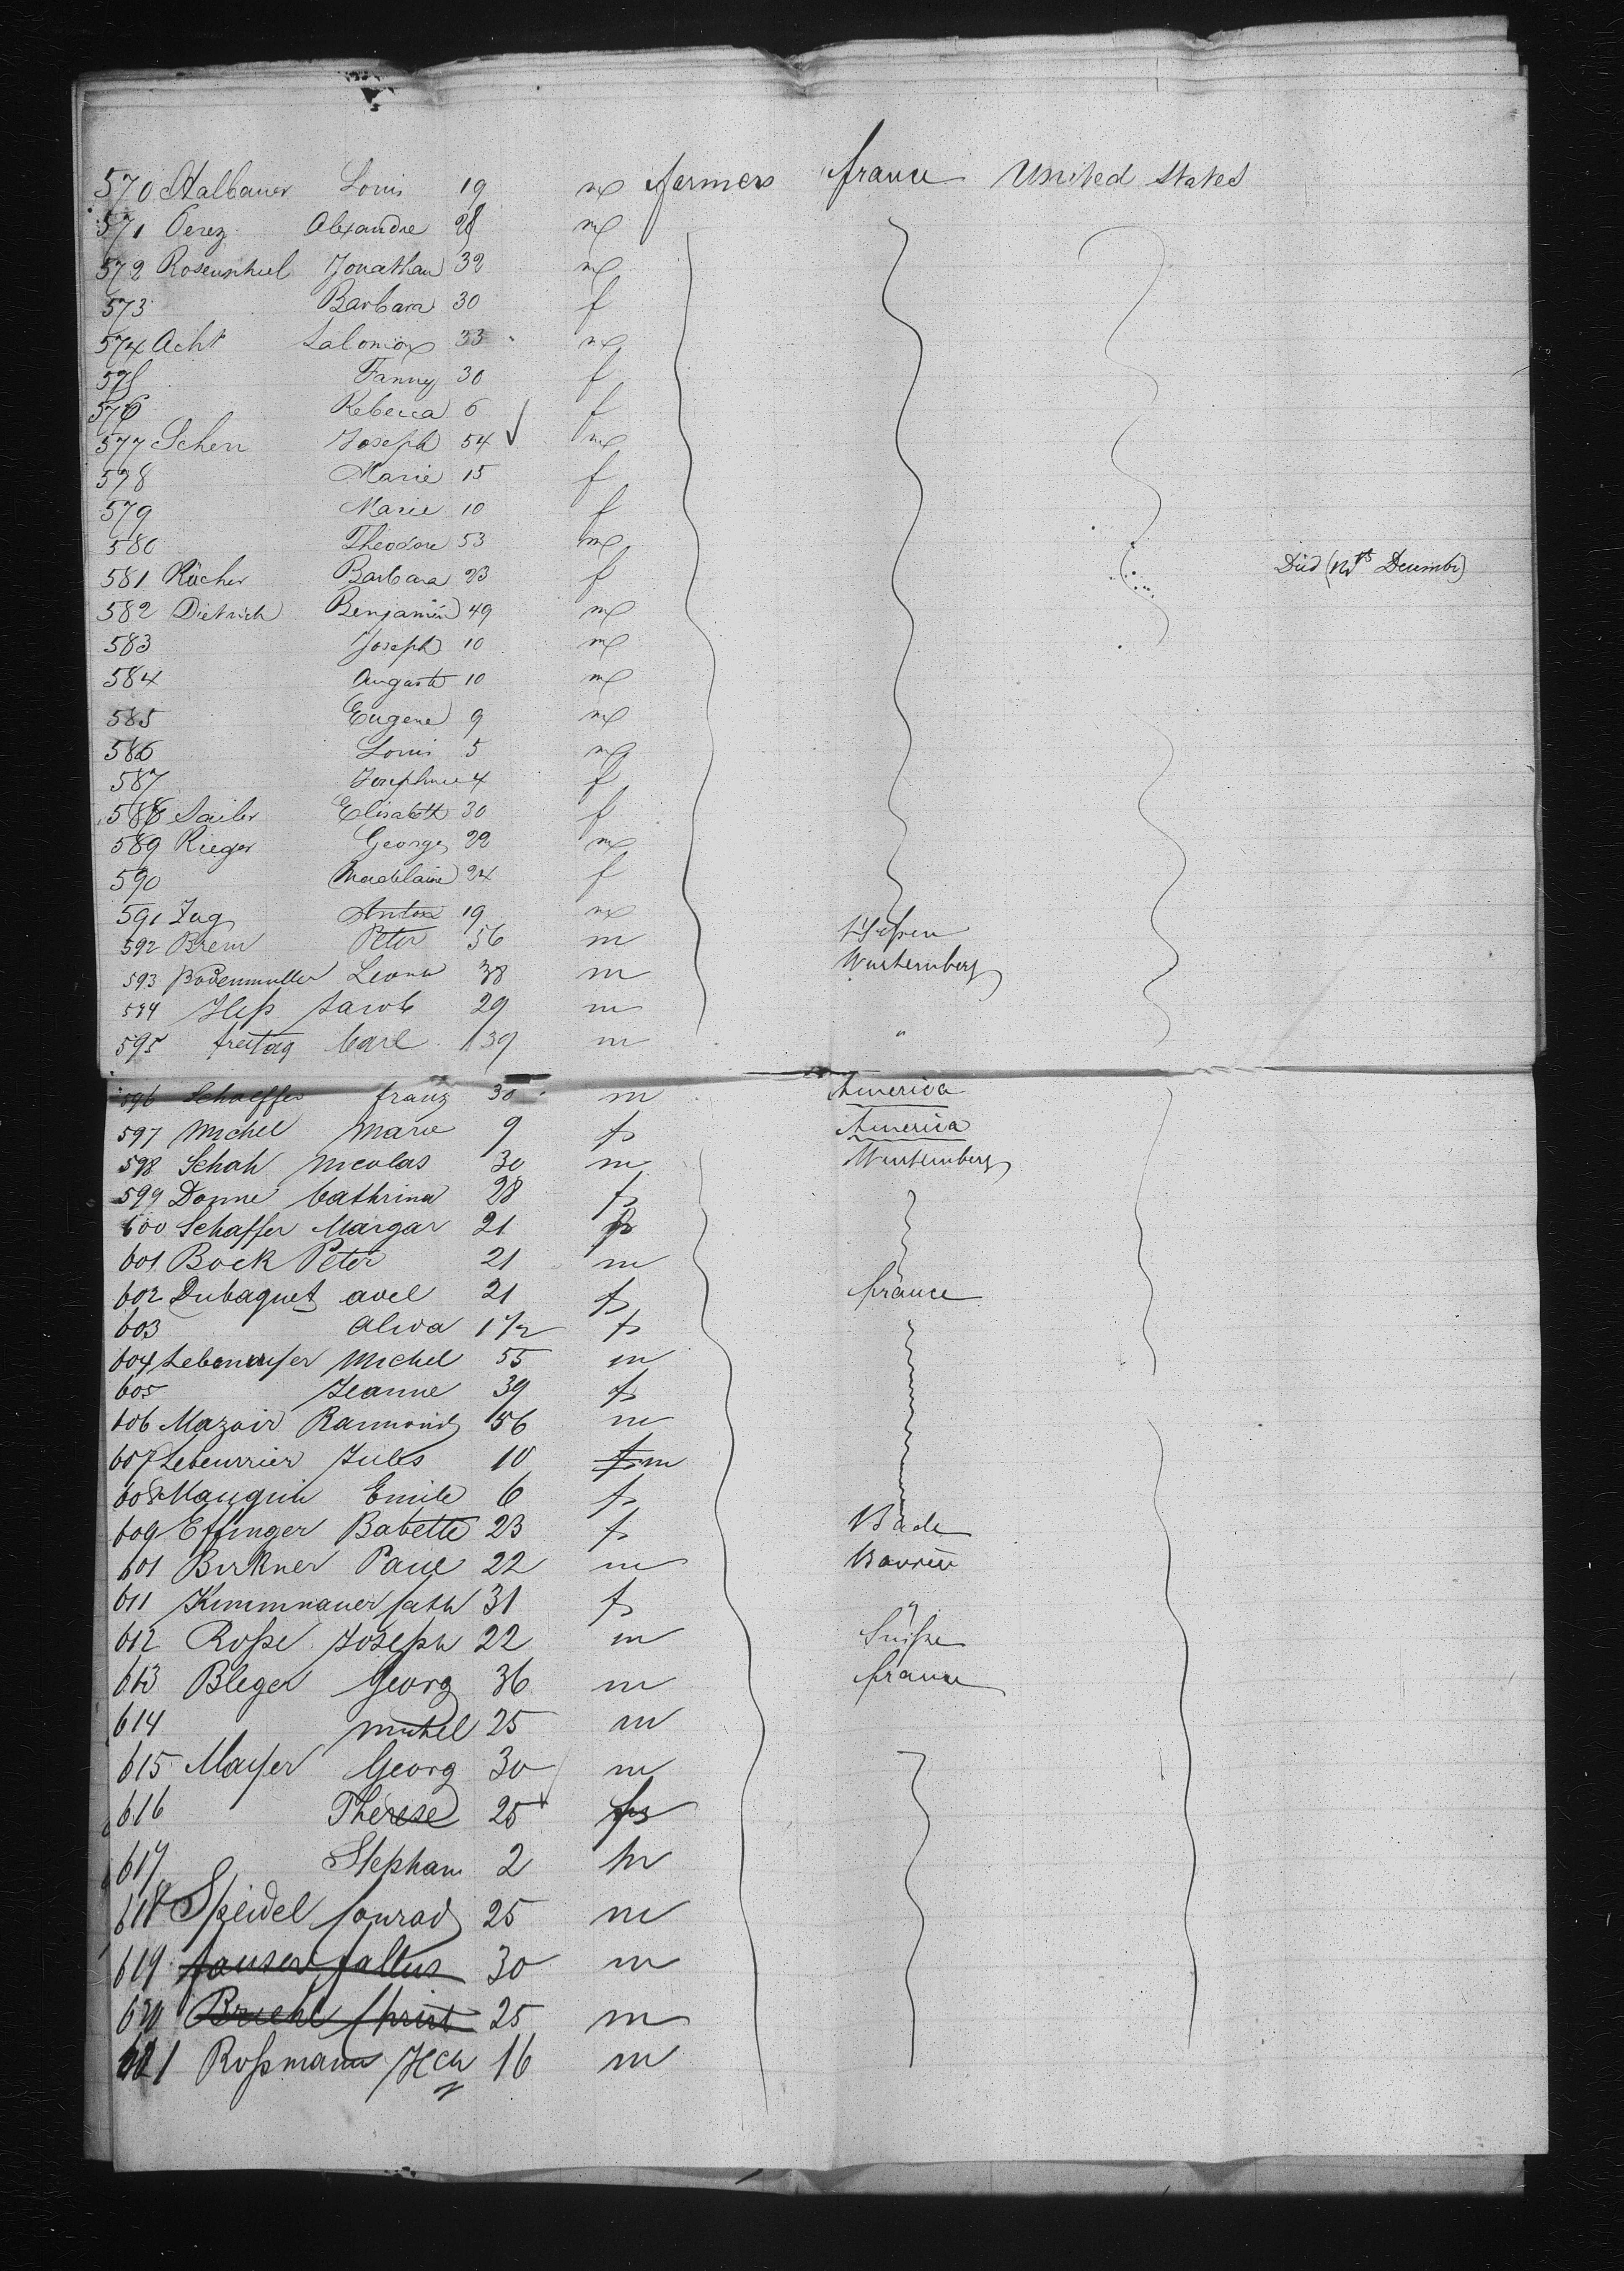 570 Stalbauer Louis 19 m farmers france United States
571 Perez Alexandre 28 m
572 Rosensthiel Jonathan 32 m
573 Barbara 30 f
574 Acht Salomon 33 m
575 Fanny 30 f
576 Rebecca 6 f
577 Scherr Joseph 54 m
578 Marie 15 f
579 Marie 10 f
580 Theodore 53 m
581 Rücher Barbara 23 f Died (12th December)
582 Dietrich Benjamin 49 m
583 Joseph 10 m
584 Auguste 10 m
585 Eugene 9 m
586 Louis 5 m
587 Josephine 4 f
588 Sailer Elisabeth 30 f
589 Rieger George 22 m
590 Madelaine 24 f
591 Zug Anton 19 m
592 Brem Peter 56 m Hessen
593 Bodenmuller Leona 38 m Wurtemberg
594 Hess Jacob 29 m
595 freitag Carl 39 m "
596 Schaeffer franz 30 m America
597 Michel Marie 9 f America
598 Schah Nicolas 30 m Wurtemberg
599 Donne Cathrina 28 f
600 Schaffer Margar 21 f
601 Bock Peter 21 m
602 Dubaquet avel 21 f france
603 Alida 1 1/2 f
604 Michel 55 m
605 Jeanne 39 f
606 Mazoir Raimond 56 m
607 Lebeurrier Jules 10 f m
608 Mauguin Emile 6 f
609 Effinger Babette 23 f Bade
601 Birkner Paul 22 m Bavière
611 Kimmnauer Cath 31 f "
612 Rosse Joseph 22 m Suisse
613 Bleger Georg 36 m france
614 Michel 25 m
615 Mayer Georg 30 m
616 Therese 25 f
617 Stephan 2 m
618 Speidel Conrad 25 m
619 fauser Gallus 30 m
620 Bruehl Christ 25 m
621 Rossmann Hch 16 m